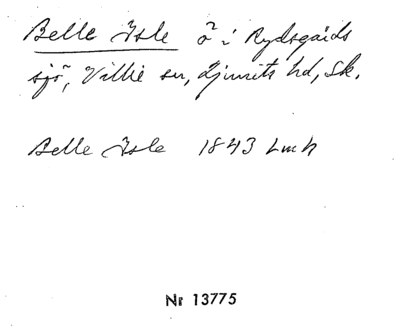 Belle Isle ö i Rydsgårds
sjö, Villie sn, Ljunits hd, Sk.
Belle Isle 1843 Lmh
Nr 13775